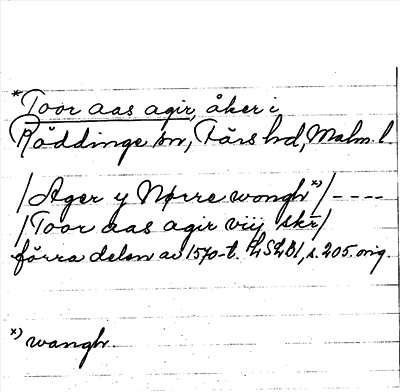 *Toor aas agir, åker i
Röddinge sn, Färs hd, Malm. l.
/Ager y Nørre wongh *)/----
/Toor aas agir vij skr/
förra delen av 1570-t. LSLB1, s. 205. orig.
*) wangh.